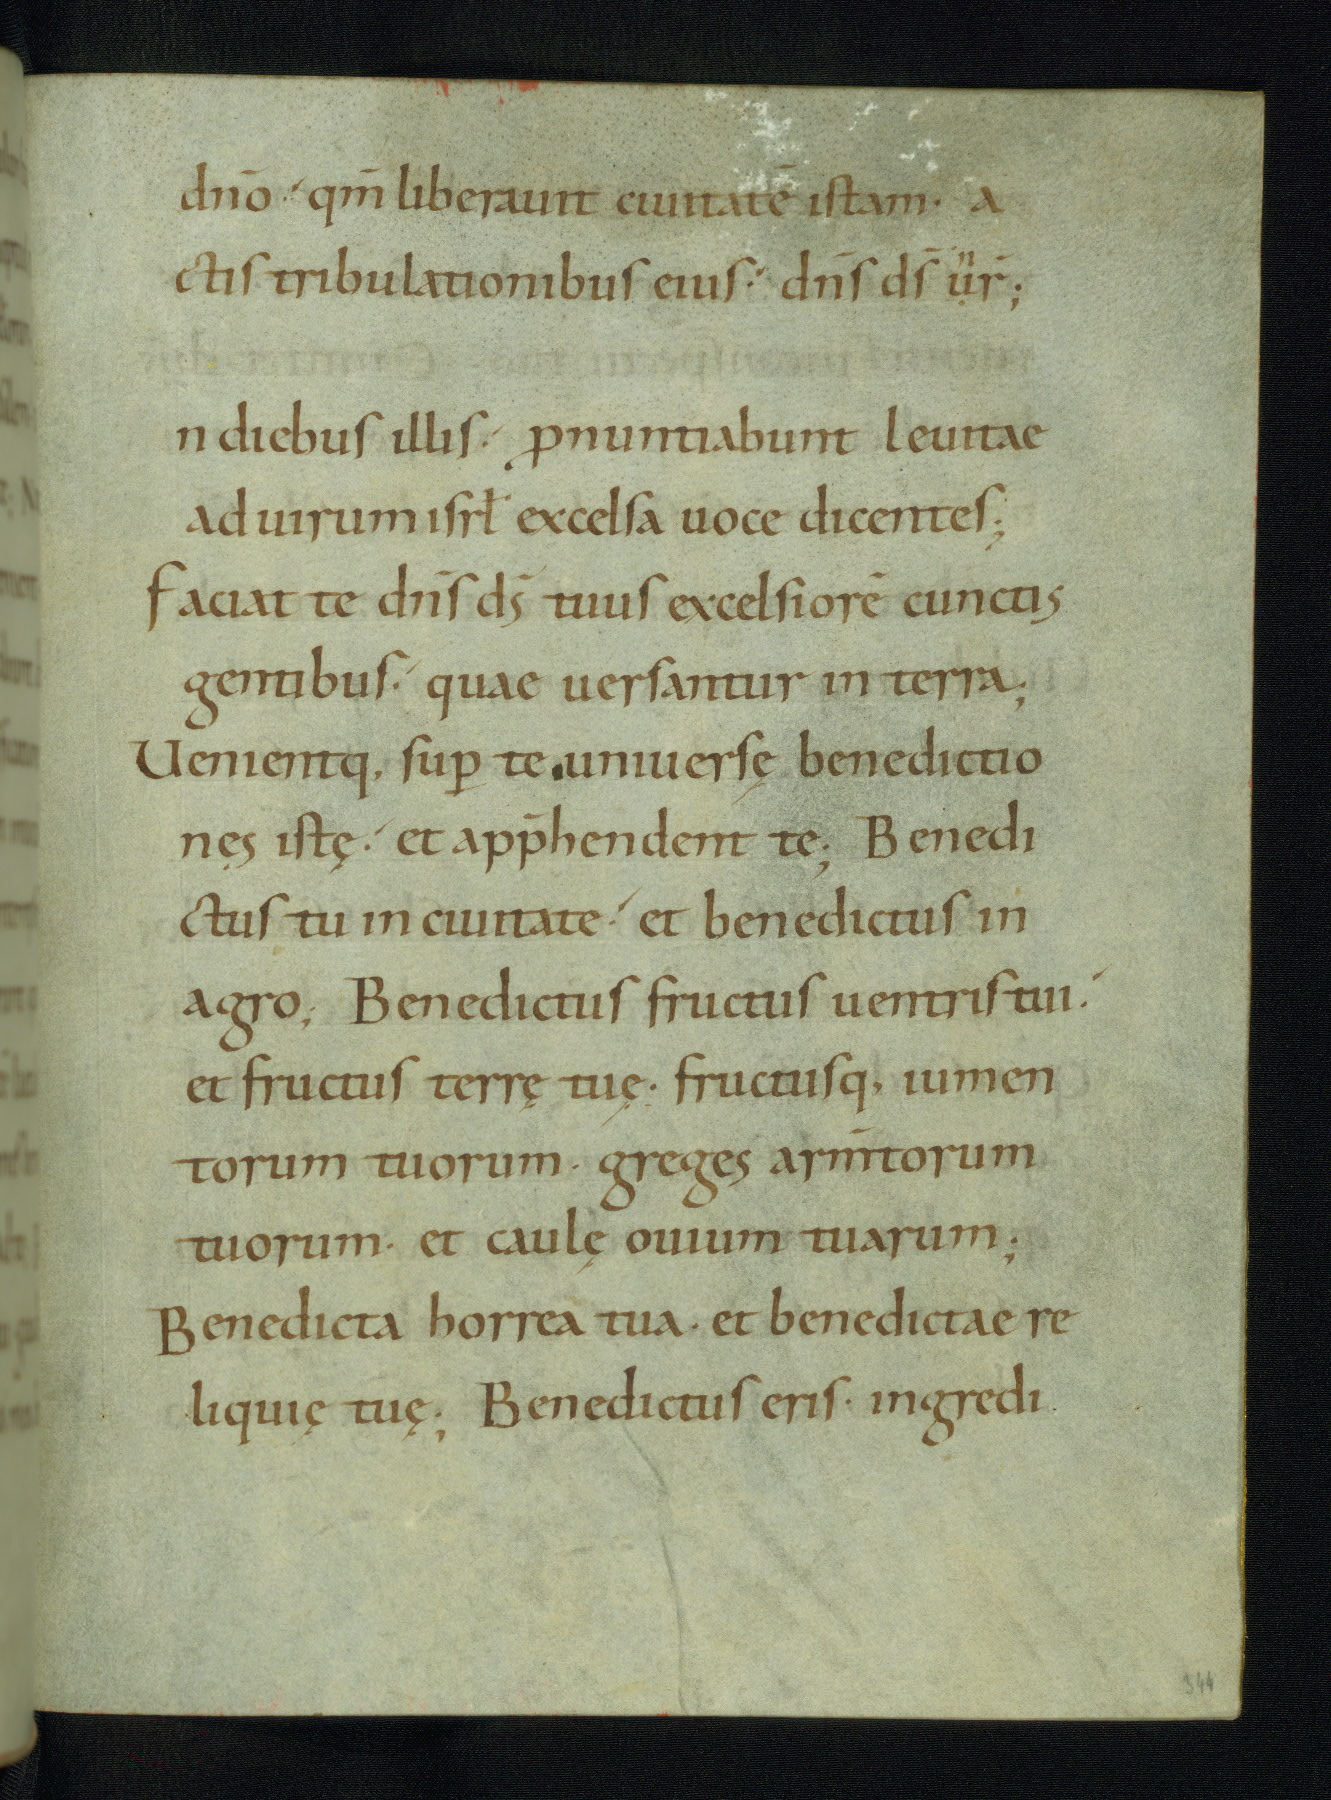 dn̄o· qm̄ liberauit ciuitatē istam· a
ctis tribulationibus eius· dn̄s ds̄ ur̄;
n diebus illis· ꝓnuntiabunt leuitae
ad uirum isrł excelsa uoce dicentes;
faciat te dn̄s ds̄ tuus excelsiorē cunctis
gentibus· quae uersantur in terra;
Uenientq, sup̄ te uniuersę benedictio
nęs istę· et app̄hendent te; Benedi
ctus tu in ciuitate· et benedictus in
agro; Benedictus fructus uentris tui·
et fructus terrę tuę· fructusq, iumen
torum tuorum· greges arm̄torum
tuorum· et caulę ouium tuarum;
Benedicta horrea tua· et benedictae re
liquię tuę; Benedictus eris· ingredi
344